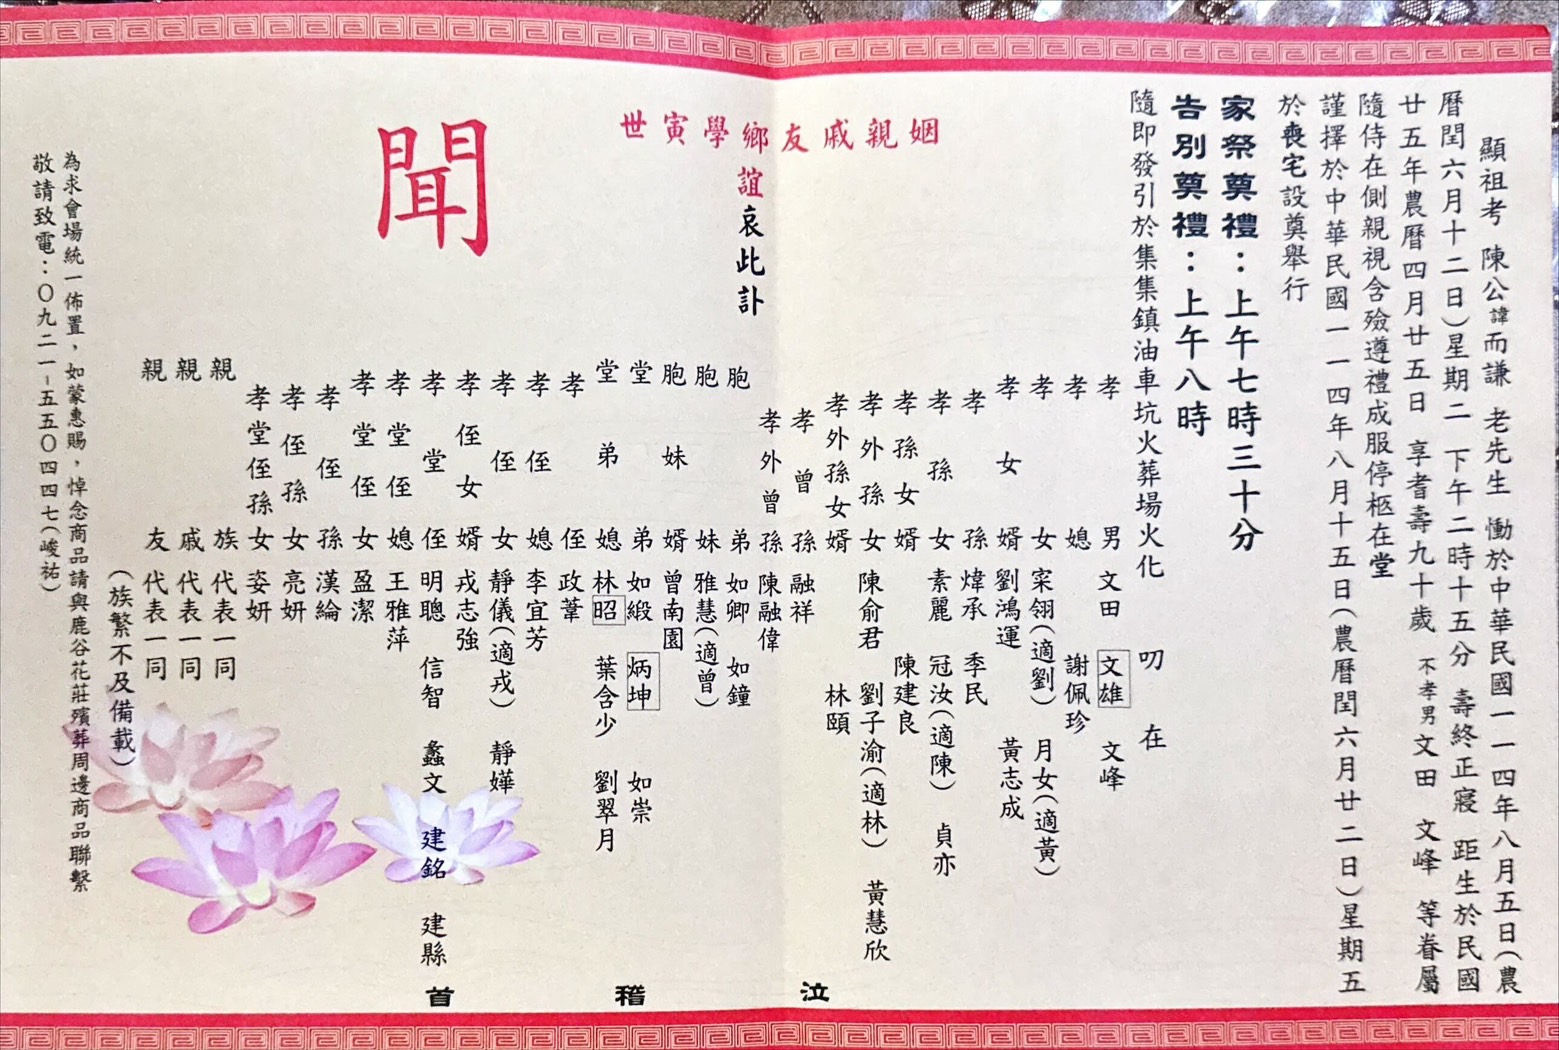 顯祖考 陳公諱而謙 老先生 慟於中華民國一一四年八月五日(農
曆閏六月十二日)星期二 下午二時十五分 壽終正寢 距生於民國
廿五年農曆四月廿五日 享耆壽九十歲 不孝男文田 文峰 等眷屬
隨侍在側親視含殮遵禮成服停柩在堂
謹擇於中華民國一一四年八月十五日(農曆閏六月廿二日)星期五
於喪宅設奠舉行
家祭奠禮:上午七時三十分
告別奠禮:上午八時
隨即發引於集集鎮油車坑火葬場火化
叨在
姻親戚友鄉學寅世
誼哀此訃
聞
孝男 文田 文雄 文峰
孝媳 謝佩珍
孝女 寀翎(適劉) 月女(適黃)
孝女婿 劉鴻運 黃志成
孝孫 煒承 季民
孝孫女 素麗 冠汝(適陳) 貞亦
孝孫女婿 陳建良
孝外孫女 陳俞君 劉子渝(適林) 黃慧欣
孝外孫女婿 林頤
孝曾孫 融祥
孝外曾孫 陳融偉
胞弟 如卿 如鐘
胞妹 雅慧(適曾)
胞妹婿 曾南園
堂弟 如緞 炳坤 如崇
堂弟媳 林昭 葉含少 劉翠月
孝侄 政葦
孝侄媳 李宜芳
孝侄女 靜儀(適戎) 靜嬅
孝侄女婿 戎志強
孝堂侄 明聰 信智 蠡文 建銘 建縣
孝堂侄媳 王雅萍
孝堂侄女 盈潔
孝侄孫 漢綸
孝侄孫女 亮妍
孝堂侄孫女 姿妍
親族代表一同
親戚代表一同
親友代表一同
(族繁不及備載)
泣稽首
為求會場統一佈置,如蒙惠賜,悼念商品請與鹿谷花莊殯葬周邊商品聯繫
敬請致電:〇九二一-五五〇四四七(峻祐)